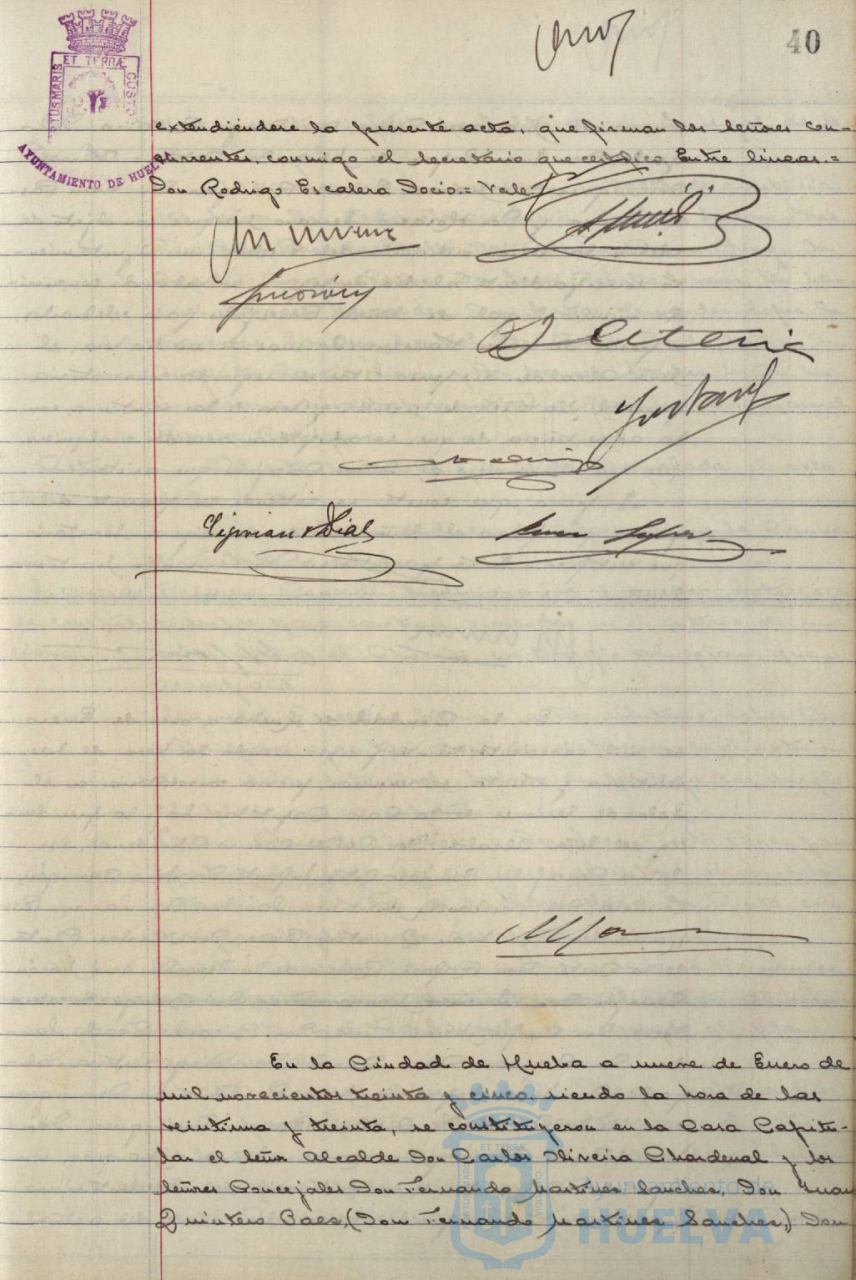 40
ET TERRÆ
AYUNTAMIENTO DE HUEL
extendiendose la presente acta, que firman los señores con-
currentes, conmigo el Secretario que certifico. Entre lineas.=
Don Rodrigo Escalera Socio.= Vale
Cipriano Dial
En la Ciudad de Huelva a nueve de Enero de
mil novecientos treinta y cinco, siendo la hora de las
veintiuna y treinta, se constituyeron en la Casa Capitu-
lar el Señor Alcalde Don Carlos Oliveira Chardenal y los
Señores Concejales Don Fernando Martines Sanches, Don Juan
Quintero Baes, (Don Fernando Martines Sanches,) Don
Ayuntamiento de
HUELVA